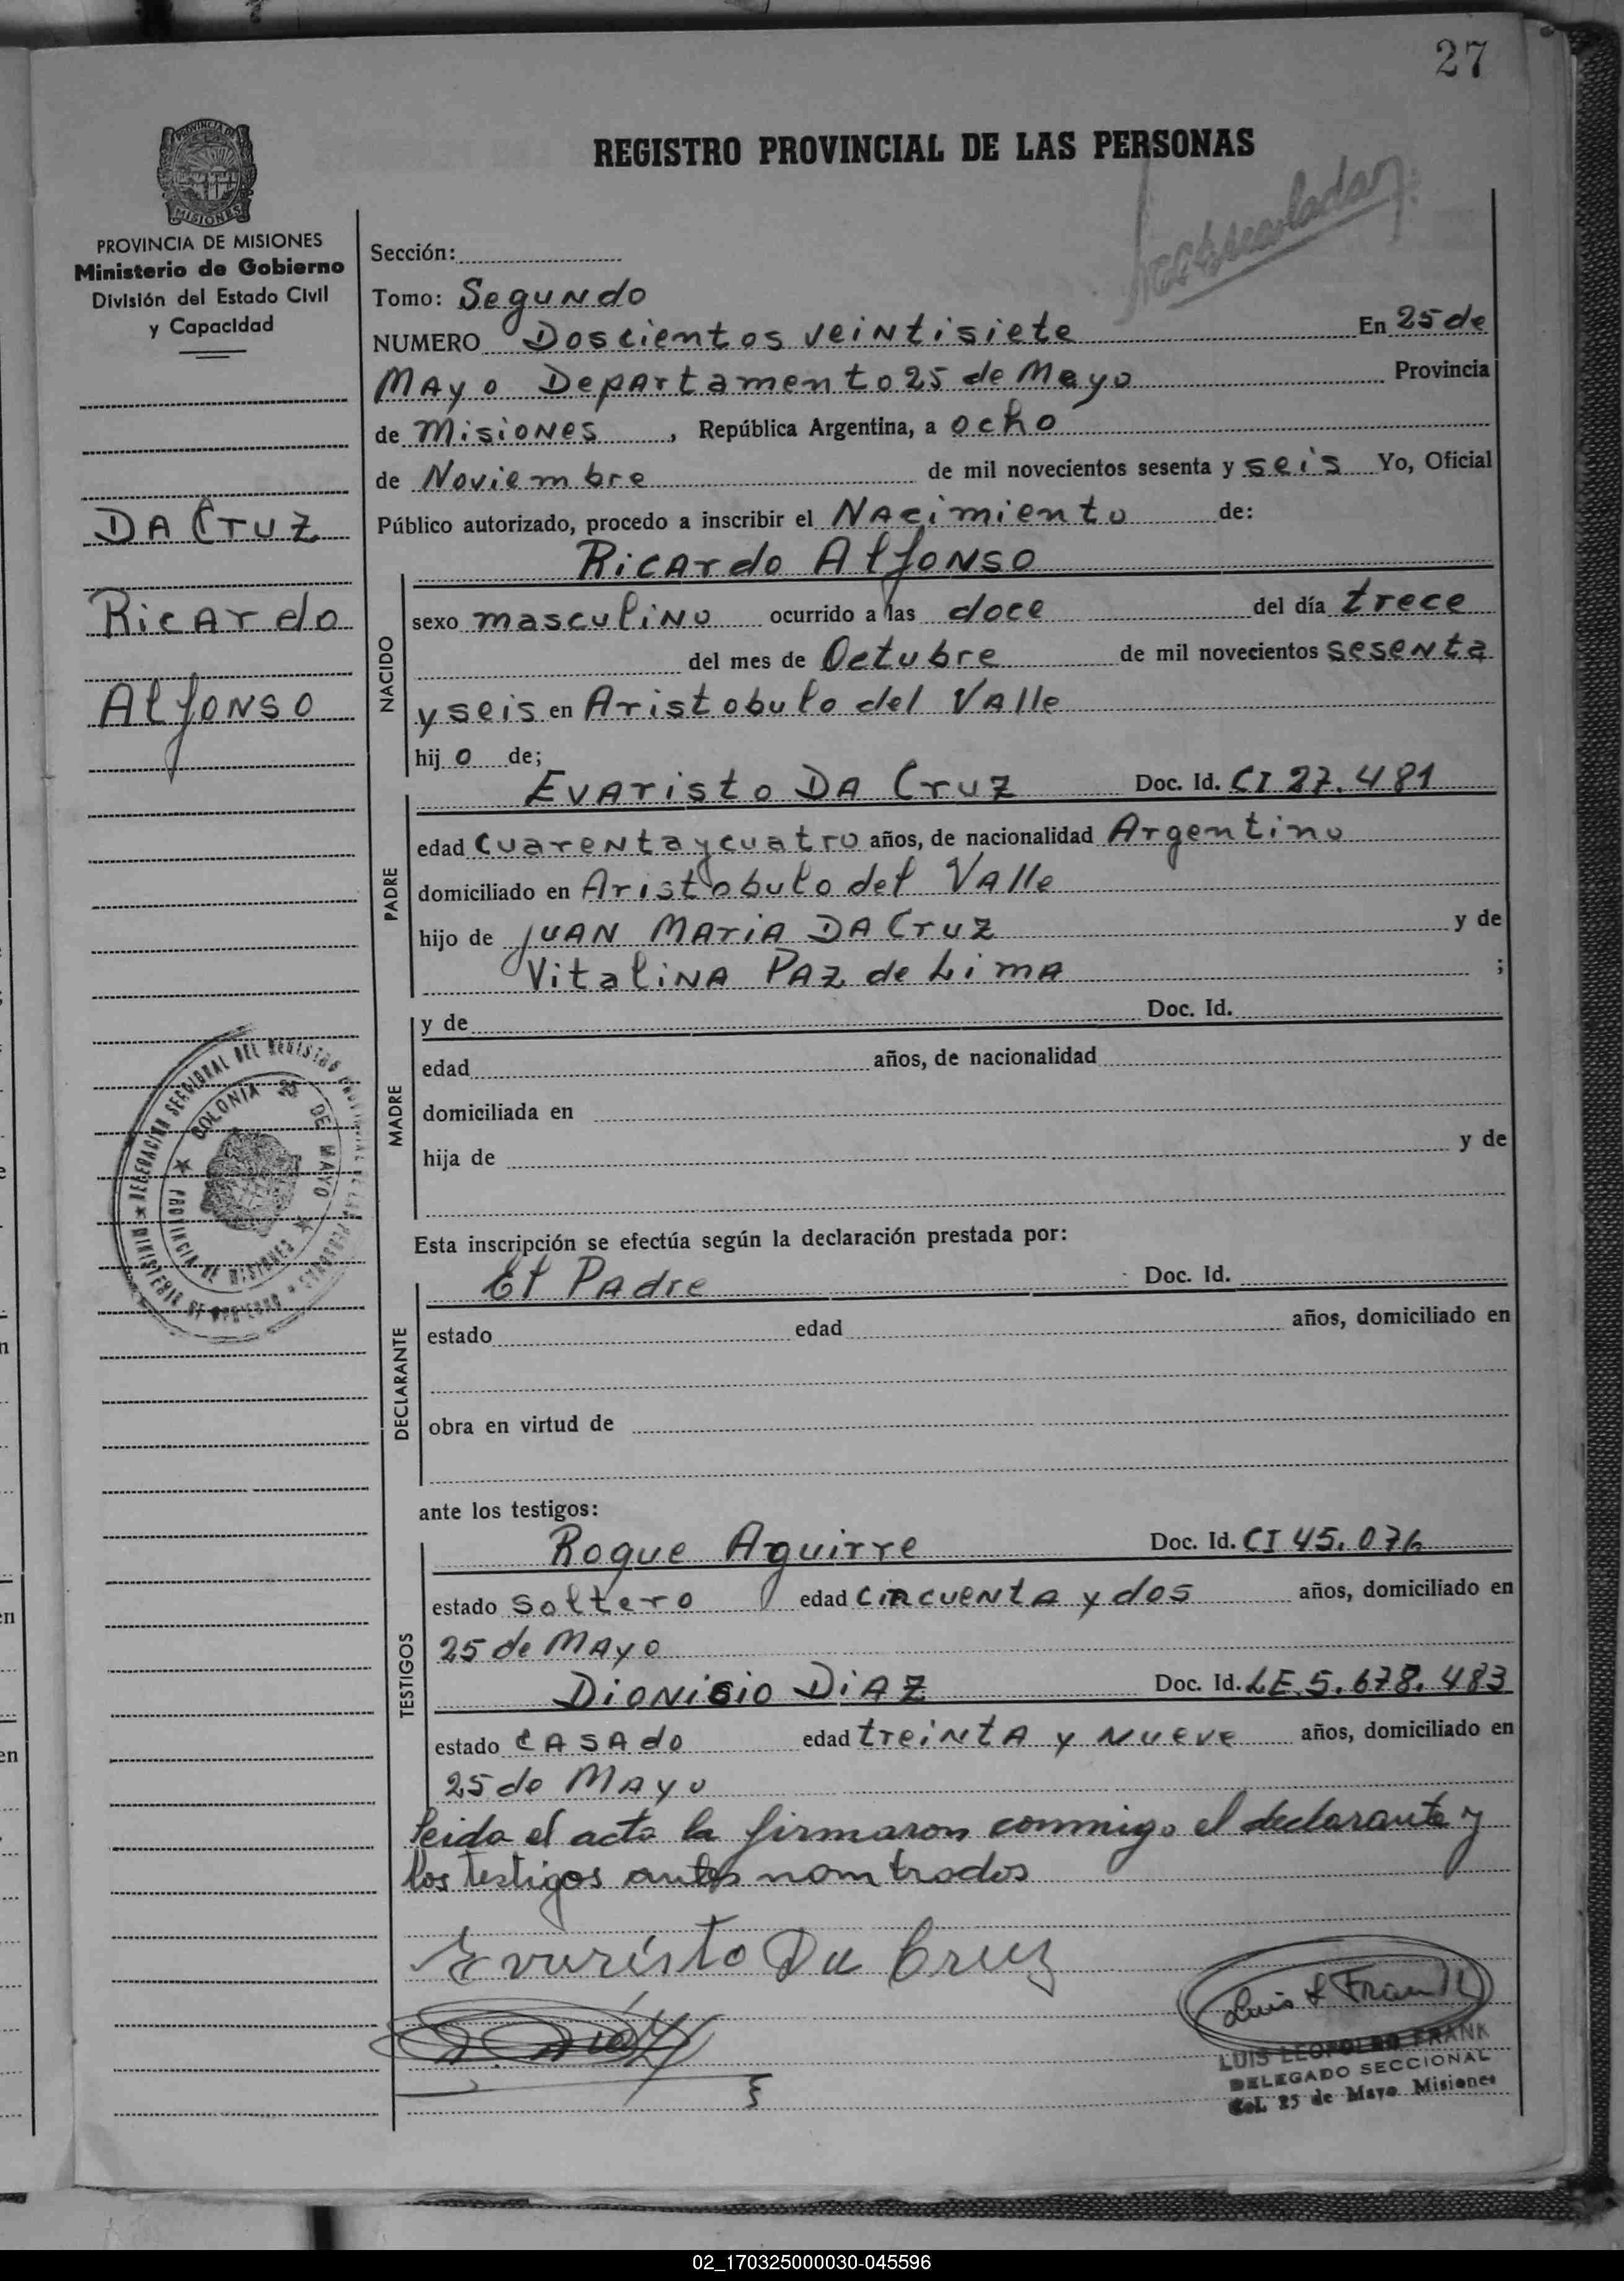 27
REGISTRO PROVINCIAL DE LAS PERSONAS
PROVINCIA DE
MISIONES
PROVINCIA DE MISIONES
Ministerio de Gobierno
División del Estado Civil
y Capacidad
DA CruZ
RicArdo
AlfoNso
Sección:
Tomo: SeguNdo
NUMERO Doscientos veiNtisiete En 25 de
MAyo DepArtamento 25 de Mayo Provincia
de MisioNes, República Argentina, a ocho
de Noviembre de mil novecientos sesenta y seis Yo, Oficial
Público autorizado, procedo a inscribir el NAcimiento de:
RicArdo AlfoNso
NACIDO
sexo masculiNo ocurrido a las doce del día trece
del mes de Octubre de mil novecientos seseNta
y seis en Aristobulo del VAlle
hijo de;
EvAristo DA CruZ Doc. Id. CI 27.481
PADRE
edad cuareNta y cuatro años, de nacionalidad Argentino
domiciliado en Aristobulo del VAlle
hijo de JUAN MAriA DA CruZ y de
VitaliNA PAZ de LimA ;
MADRE
y de Doc. Id.
edad años, de nacionalidad
domiciliada en
hija de y de
DELEGACION SECCIONAL DEL REGISTRO PROVINCIAL DE LAS PERSONAS
MINISTERIO DE GOBIERNO
COLONIA 25 DE MAYO
PROVINCIA DE MISIONES
Esta inscripción se efectúa según la declaración prestada por:
El PAdre Doc. Id.
DECLARANTE
estado edad años, domiciliado en
obra en virtud de
ante los testigos:
Roque Aguirre Doc. Id. CI 45.076
TESTIGOS
estado soltero edad ciNcueNtA y dos años, domiciliado en
25 de MAyo
DioNisio DiAZ Doc. Id. LE.5.678.483
estado CASAdo edad treiNtA y Nueve años, domiciliado en
25 de MAyo
leida el acta la firmaron conmigo el declarante y
los testigos antes nombrados
Evaristo Da Cruz
Luis L Frank
LUIS LEOPOLDO FRANK
DELEGADO SECCIONAL
Col. 25 de Mayo Misiones
02_170325000030-045596